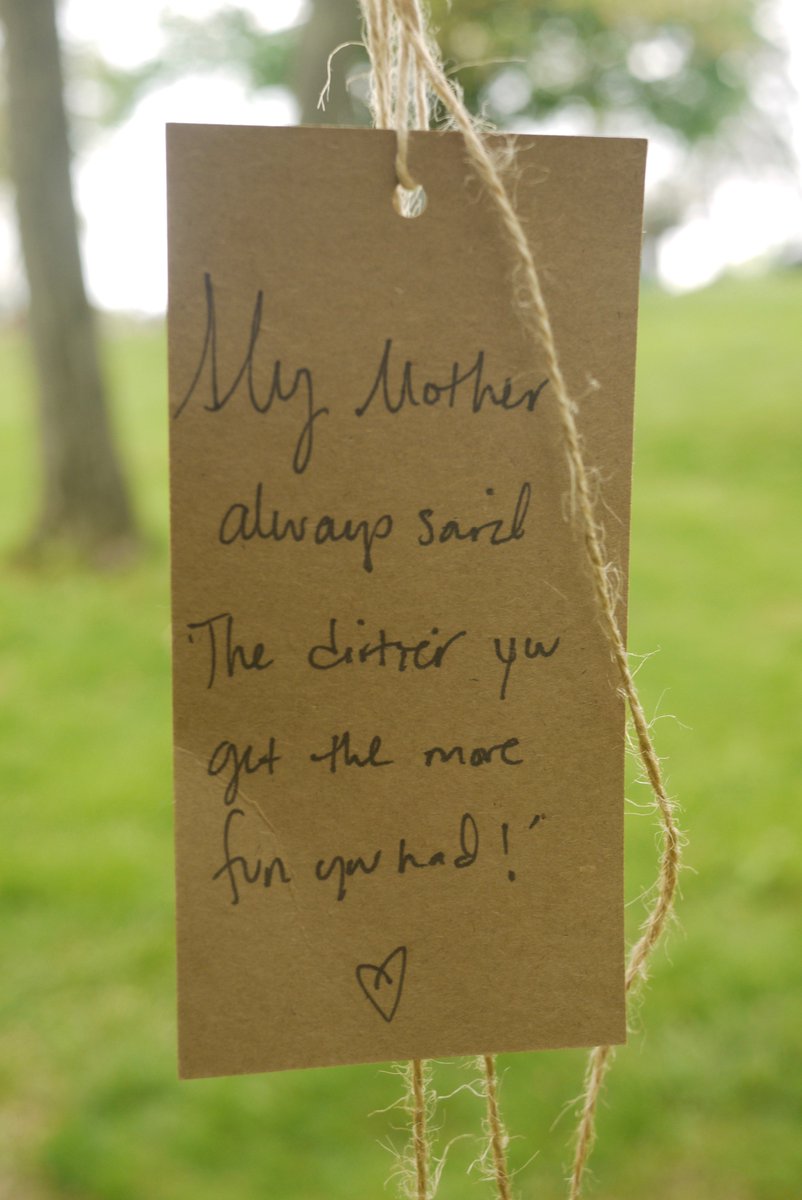 My Mother
always said
"The dirtier you
get the more
fun you had!"